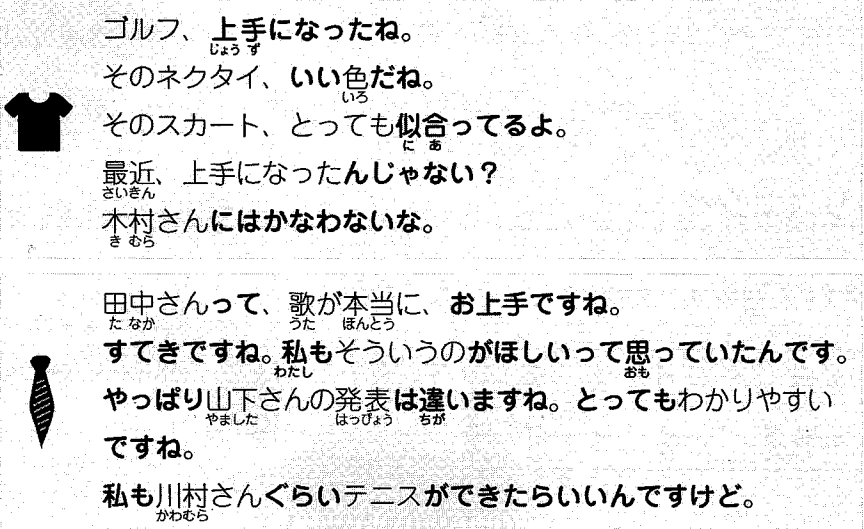 ゴルフ、上手になったね。
じょうず
そのネクタイ、いい色だね。
いろ
そのスカート、とっても似合ってるよ。
に あ
最近、上手になったんじゃない？
さいきん
木村さんにはかなわないな。
き むら
田中さんって、歌が本当に、お上手ですね。
た なか うた ほんとう
すてきですね。私もそういうのがほしいって思っていたんです。
わたし おも
やっぱり山下さんの発表は違いますね。とってもわかりやすい
やました はっぴょう ちが
ですね。
私も川村さんぐらいテニスができたらいいんですけど。
かわむら